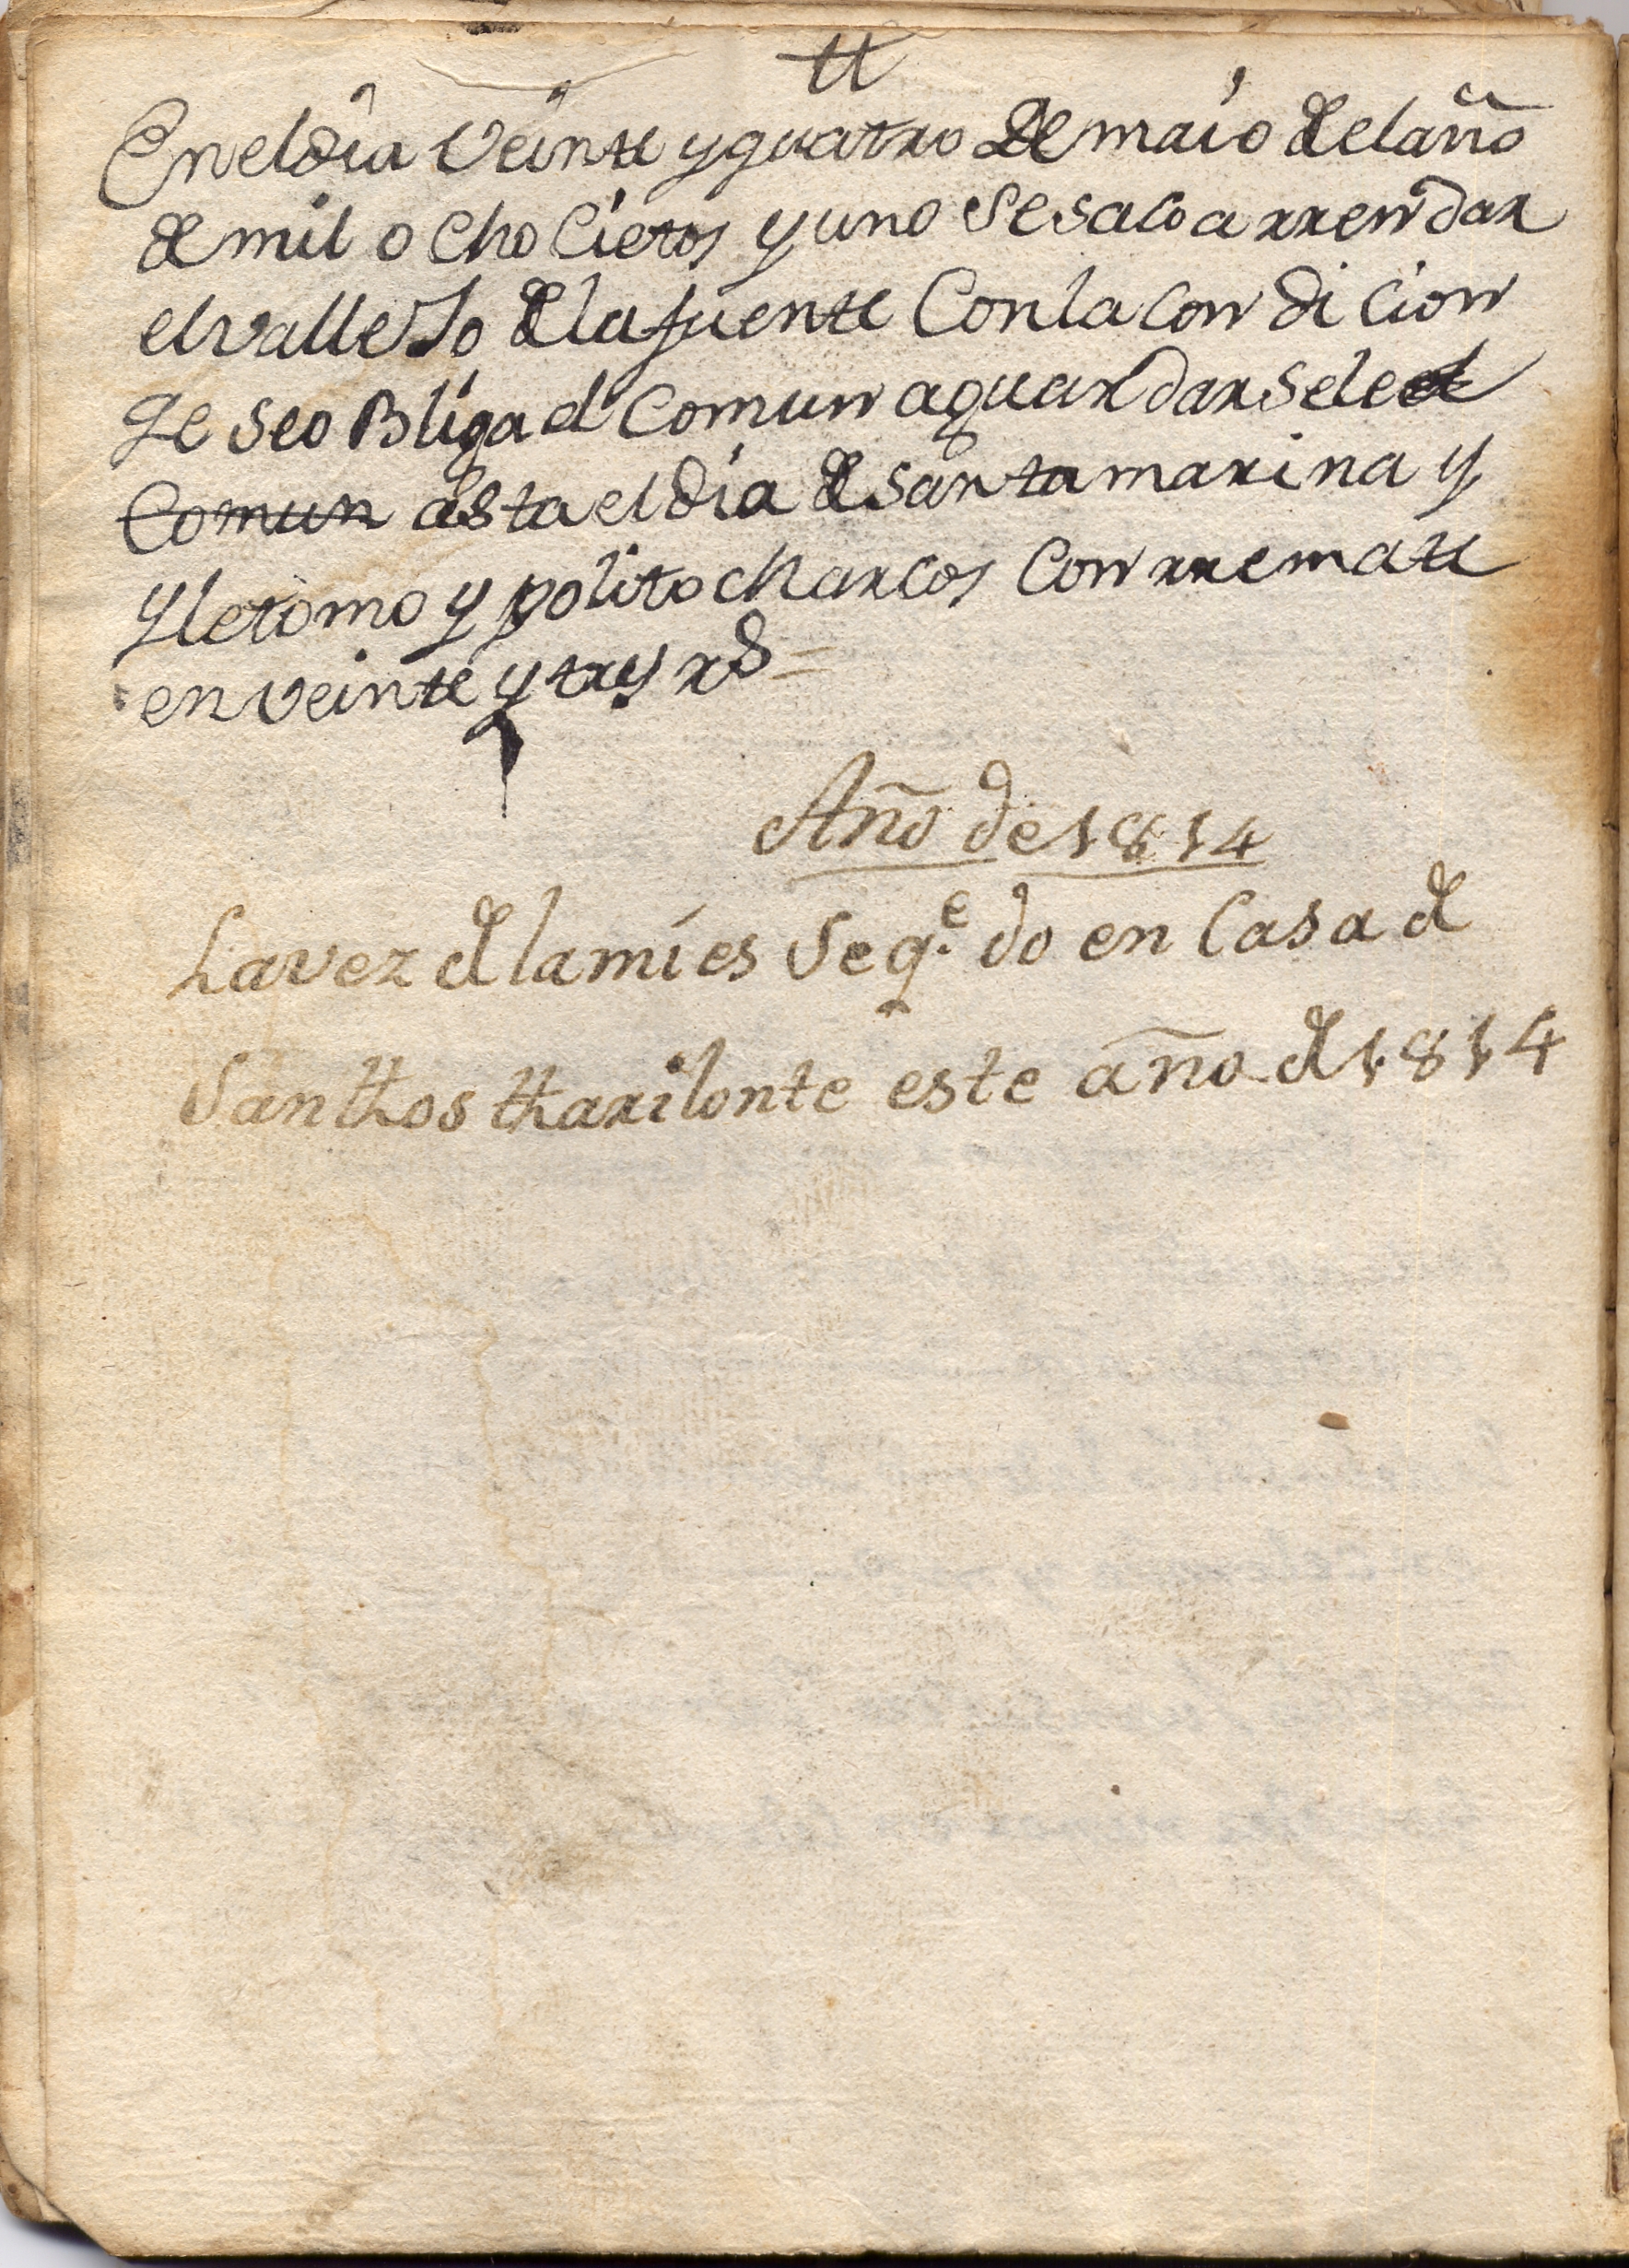 tt
En el dia Veinte y guatro de maio del año
de mil ocho Cietos y uno se saco a rrendar
el valleJo de la fuente Con la condicion
qe se oBliga el Comun a guardarsele el
Comun asta el dia de santa marina y
y le tomo ypolito Marcos Con rremate
en veinte y tres rs
Año de 1814
La vez de la mies se q.e do en Casa de
Santtos ttarilonte este año de 1814